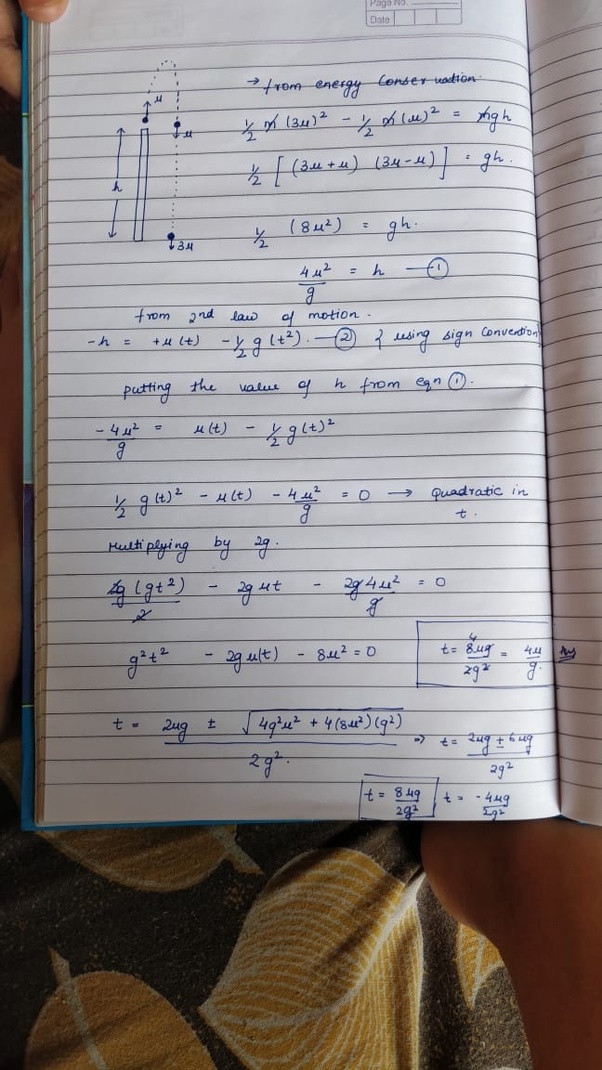 Page No.
Date
→ from energy Conservation.
½ m (3u)² - ½ m (u)² = mgh
½ [ (3u + u) (3u - u) ] = gh.
½ (8u²) = gh.
4u²/g = h — ①
u
u
h
3u
from 2nd law of motion.
-h = +u(t) - ½ g(t²). — ② { using sign Convention
putting the value of h from eqn ①.
-4u²/g = u(t) - ½ g(t)²
½ g(t)² - u(t) - 4u²/g = 0 → Quadratic in
t.
Multiplying by 2g.
2g (gt²)/2 - 2g ut - 2g 4u²/g = 0
g²t² - 2g u(t) - 8u² = 0
t = 8ug/2g² = 4u/g. Ans
4
t = 2ug ± √4g²u² + 4(8u²)(g²) / 2g². ⇒ t = 2ug ± 6ug / 2g²
t = 8ug/2g² t = -4ug/2g²